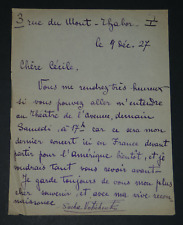 3 rue du Mont-Thabor. Ier
le 9 Déc. 27
Chère Cécile,
Vous me rendrez très heureux
si vous pouvez aller m'entendre
au Théâtre de l'Avenue, demain
Samedi, à 17h car ce sera mon
dernier concert ici en France devant
partir pour l'Amérique bientôt, et je
voudrais tant vous revoir avant.
Je garde toujours de vous mon plus
cher souvenir et avec ma vive recon-
naissance.